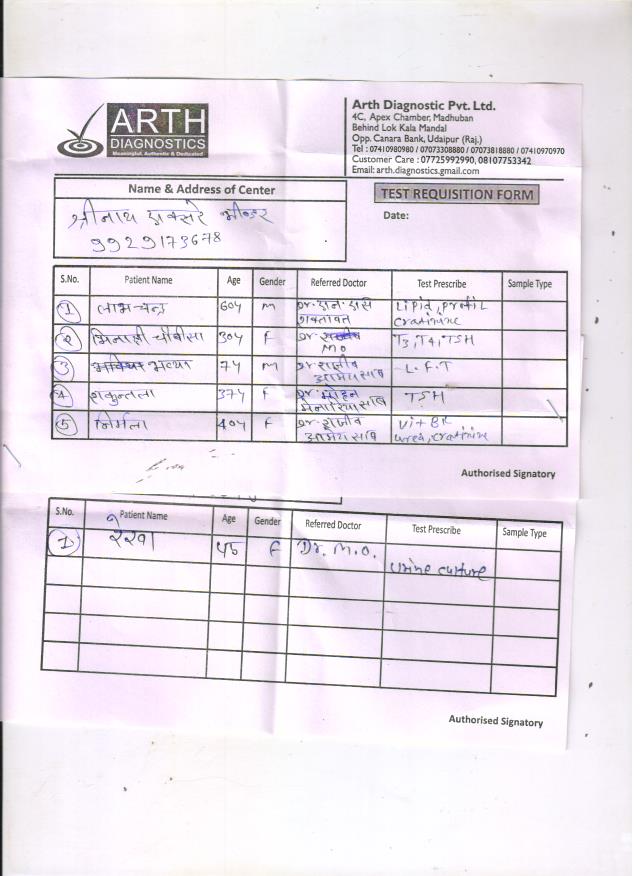 ARTH
DIAGNOSTICS
Meaningful, Authentic & Dedicated
Arth Diagnostic Pvt. Ltd.
4C, Apex Chamber, Madhuban
Behind Lok Kala Mandal
Opp. Canara Bank, Udaipur (Raj.)
Tel : 07410980980 / 07073308880 / 07073818880 / 07410970970
Customer Care : 07725992990, 08107753342
Email: arth.diagnostics.gmail.com
Name & Address of Center
श्रीनाथ एक्सरे भीण्डर
9929173678
TEST REQUISITION FORM
Date:
S.No. Patient Name Age Gender Referred Doctor Test Prescribe Sample Type
1 लाभ-चन्द्र 60Y M शक्तावत Lipid, Profil Cratinine
2 चौबीसा 30Y F Dr. M.O T3, T4, TSH
3 भव्या 7Y M डॉ. राजीव L.F.T
4 शकुन्तला 37Y F डॉ. मोहन मेनारिया साब TSH
5 निर्मला 40Y F डॉ. राजीव Vit B12 urea, Cratinine
Authorised Signatory
S.No. Patient Name Age Gender Referred Doctor Test Prescribe Sample Type
1 रेखा F Dr. M.O. Urine culture
Authorised Signatory